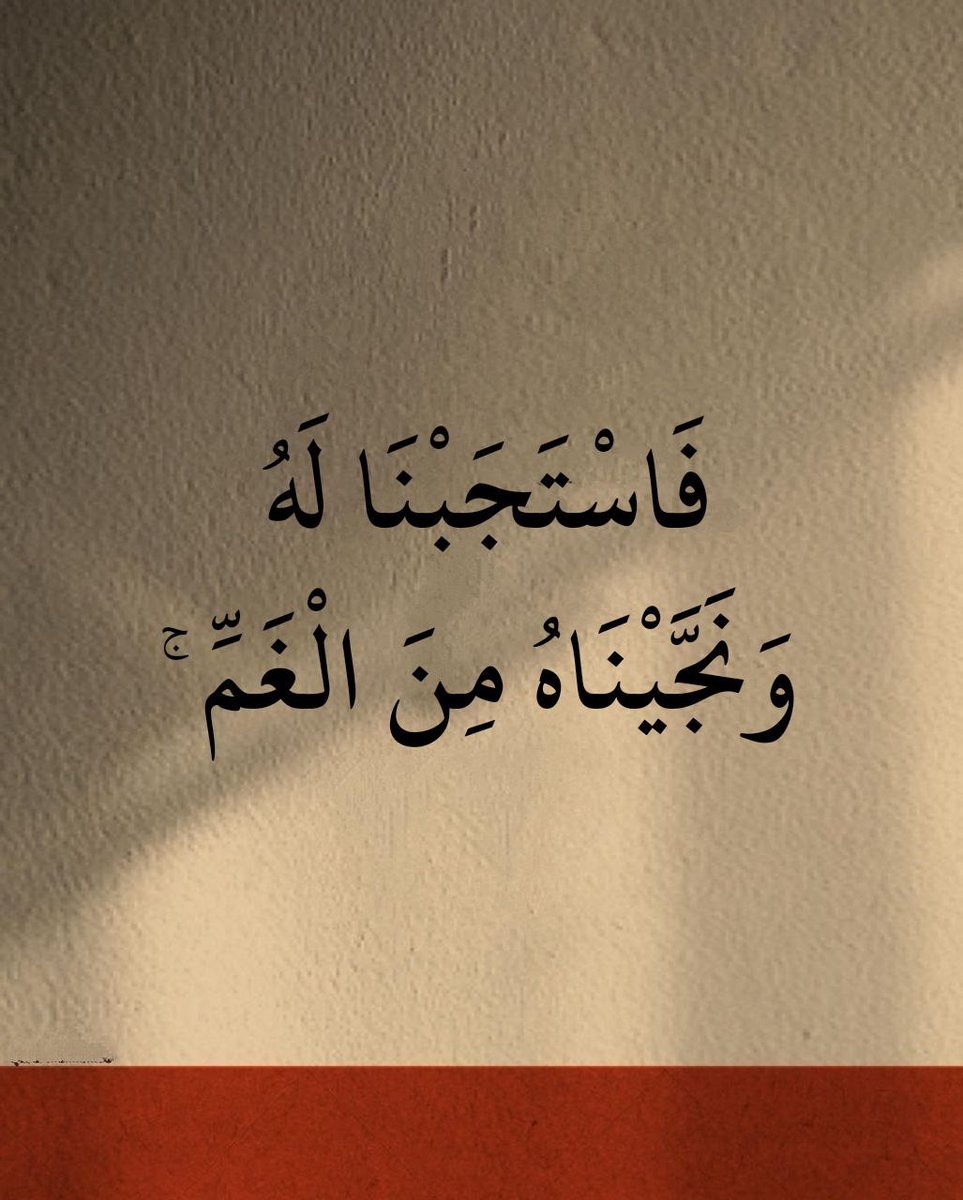 فَاسْتَجَبْنَا لَهُ
وَنَجَّيْنَاهُ مِنَ الْغَمِّ ۚ